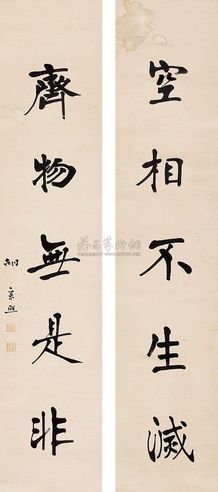 空相不生滅
齊物無是非